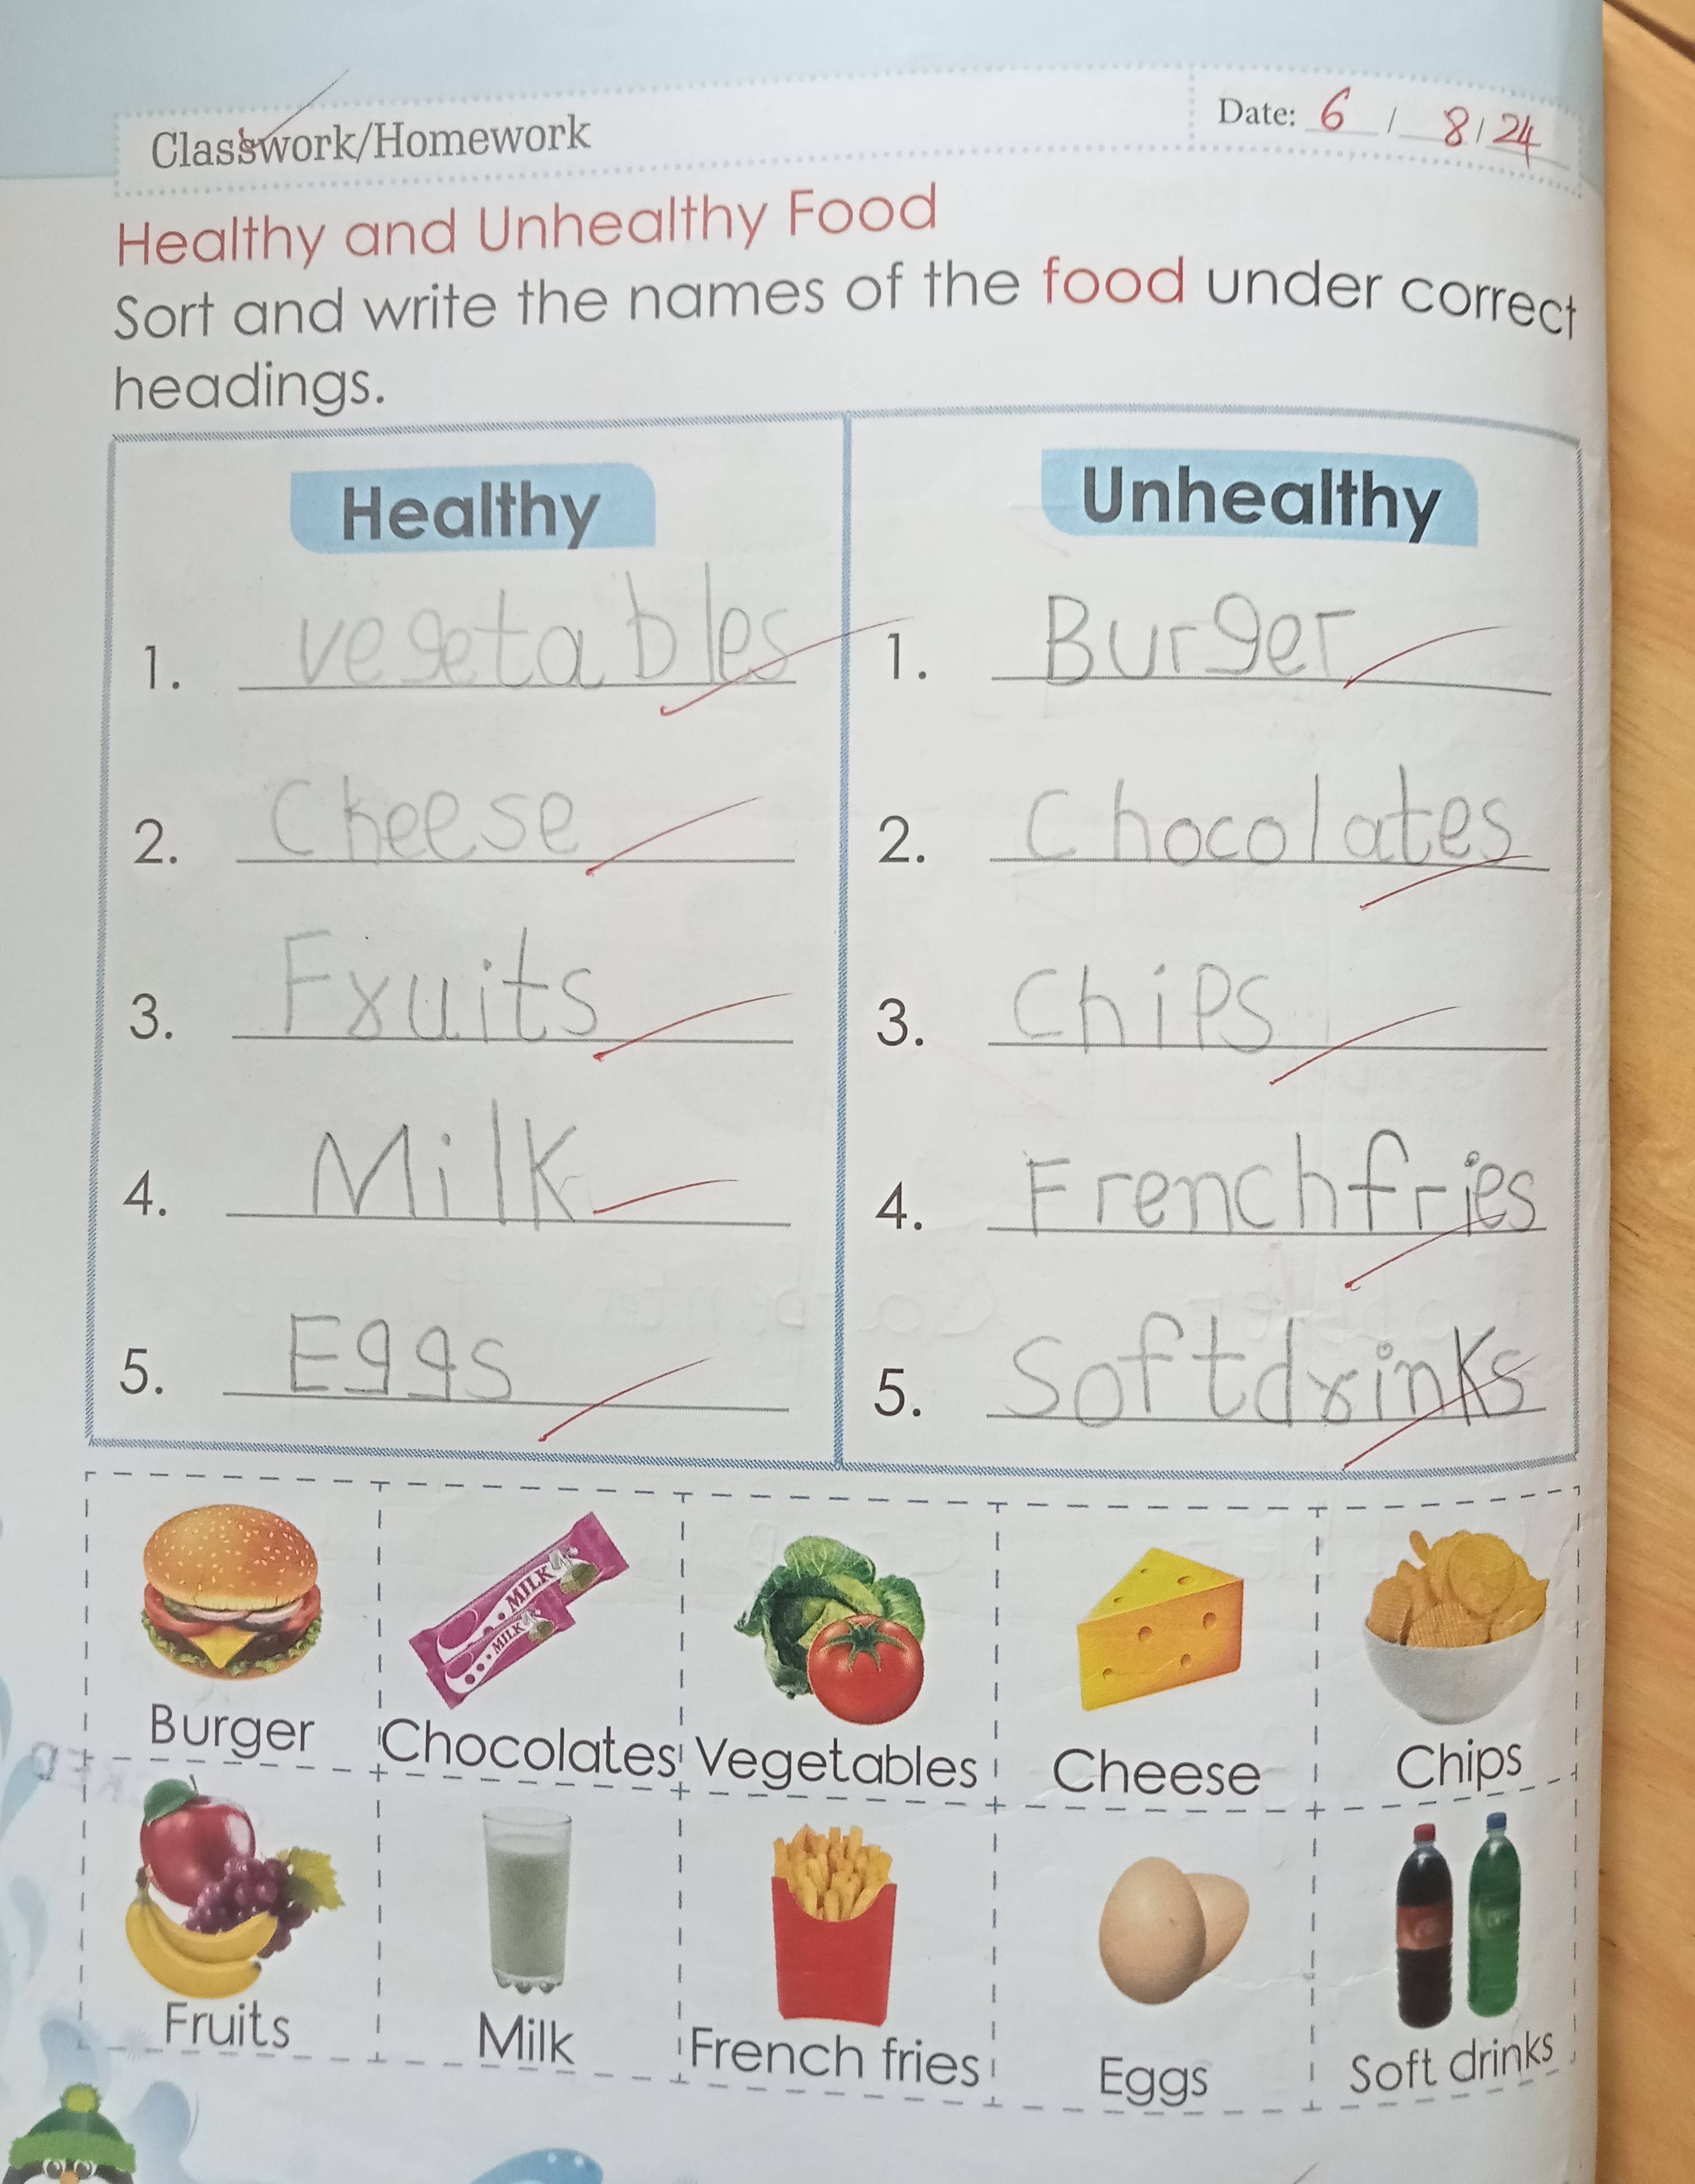 Classwork/Homework
Date: 6 / 8 / 24
Healthy and Unhealthy Food
Sort and write the names of the food under correct
headings.
Healthy
1. vegetables
2. Cheese
3. Fruits
4. Milk
5. Eggs
Unhealthy
1. Burger
2. Chocolates
3. Chips
4. French fries
5. Soft drinks
MILK
MILK
Burger
Chocolates
Vegetables
Cheese
Chips
Fruits
Milk
French fries
Eggs
Soft drinks